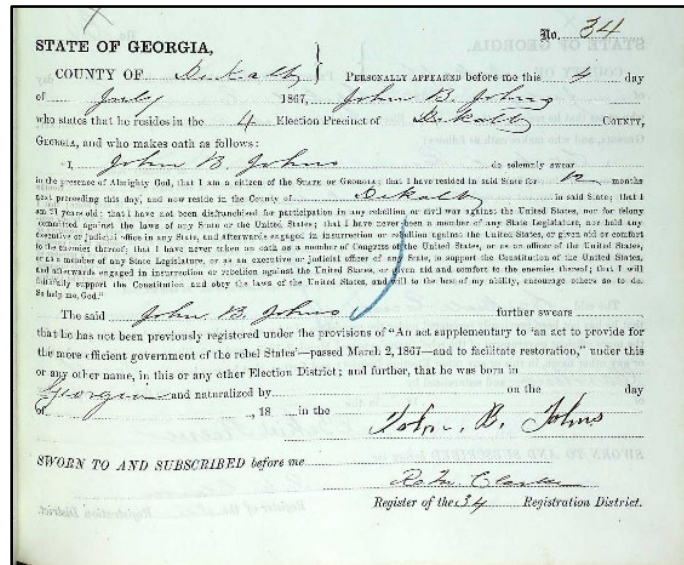 No. 34
STATE OF GEORGIA,
COUNTY OF DeKalb } PERSONALLY APPEARED before me this 4 day
of July 1867, John B. Johns
who states that he resides in the 4 Election Precinct of DeKalb COUNTY,
GEORGIA, and who makes oath as follows:
"I, John B. Johns do solemnly swear
in the presence of Almighty God, that I am a citizen of the STATE OF GEORGIA; that I have resided in said State for 12 months
next preceeding this day, and now reside in the County of DeKalb in said State; that I
am 21 years old; that I have not been disfranchised for participation in any rebellion or civil war against the United States, nor for felony
committed against the laws of any State or the United States; that I have never been a member of any State Legislature, nor held any
executive or judicial office in any State, and afterwards engaged in insurrection or rebellion against the United States, or given aid or comfort
to the enemies thereof; that I have never taken an oath as a member of Congress of the United States, or as an officer of the United States,
or as a member of any State Legislature, or as an executive or judicial officer of any State, to support the Constitution of the United States,
and afterwards engaged in insurrection or rebellion against the United States, or given aid and comfort to the enemies thereof; that I will
faithfully support the Constitution and obey the laws of the United States, and will to the best of my ability, encourage others so to do.
So help me, God."
The said John B. Johns further swears
that he has not been previously registered under the provisions of "An act supplementary to 'an act to provide for
the more efficient government of the rebel States'—passed March 2, 1867—and to facilitate restoration," under this
or any other name, in this or any other Election District; and further, that he was born in
Georgia and naturalized by on the day
of , 18 in the
John B. Johns
SWORN TO AND SUBSCRIBED before me
Clark
Register of the 34 Registration District.